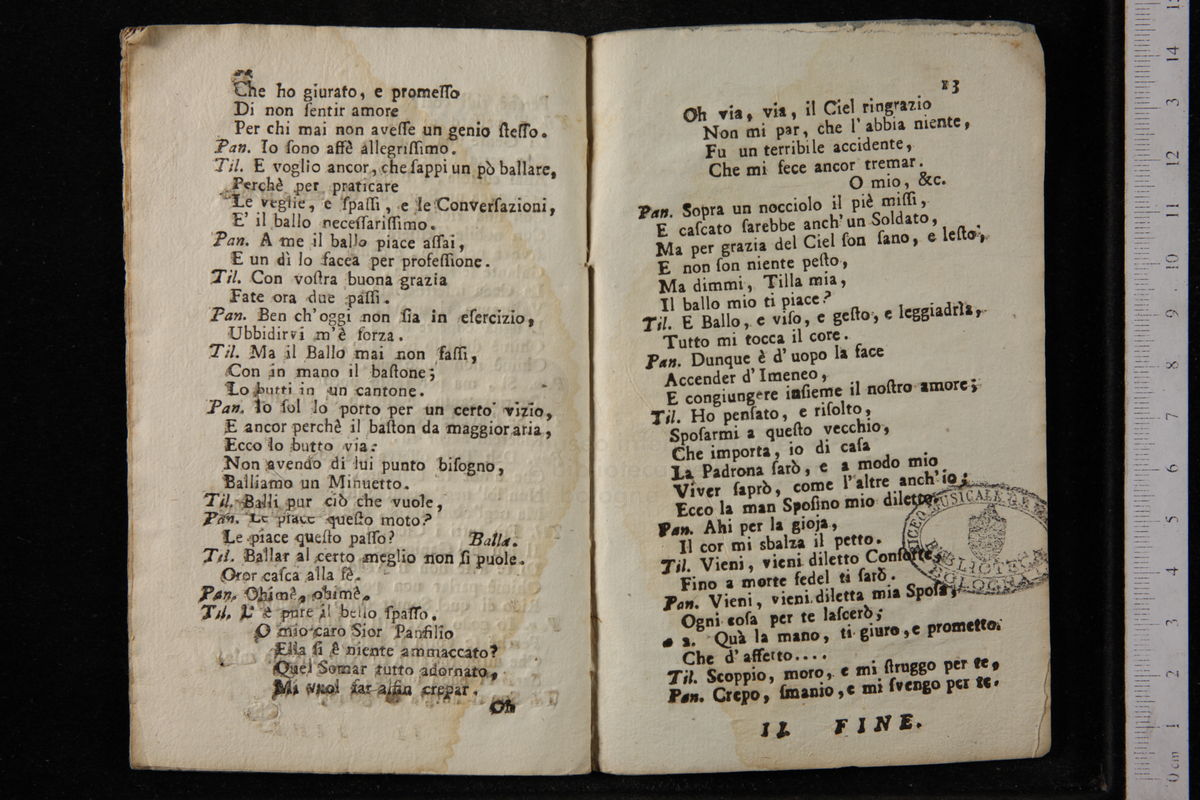 Che ho giurato, e promeſſo
Di non ſentir amore
Per chi mai non aveſſe un genio ſteſſo.
Pan. Io ſono affè allegriſſimo.
Til. E voglio ancor, che ſappi un pò ballare,
Perchè per praticare
Le veglie, e ſpaſſi, e le Converſazioni,
E' il ballo neceſſariſſimo.
Pan. A me il ballo piace aſſai,
E un dì lo facea per profeſſione.
Til. Con voſtra buona grazia
Fate ora due paſſi.
Pan. Ben ch'oggi non ſia in eſercizio,
Ubbidirvi m'è forza.
Til. Ma il Ballo mai non faſſi,
Con in mano il baſtone;
Lo butti in un cantone.
Pan. Io ſol lo porto per un certo vizio,
E ancor perchè il baſton da maggior aria,
Ecco lo butto via:
Non avendo di lui punto biſogno,
Balliamo un Minuetto.
Til. Balli pur ciò che vuole,
Pan. Le piace queſto moto?
Le piace queſto paſſo? Balla.
Til. Ballar al certo meglio non ſi puole.
caſca alla fè.
Pan. Ohimè, ohimè.
Til. L' è pure il bello ſpaſſo.
O mio caro Sior Panfilio
Ella ſi è niente ammaccato?
Quel Somar tutto adornato,
Mi vuol far alfin crepar.
Oh
13
Oh via, via, il Ciel ringrazio
Non mi par, che l'abbia niente,
Fu un terribile accidente,
Che mi fece ancor tremar.
O mio, &c.
Pan. Sopra un nocciolo il piè miſſi,
E caſcato ſarebbe anch'un Soldato,
Ma per grazia del Ciel ſon ſano, e leſto;
E non ſon niente peſto,
Ma dimmi, Tilla mia,
Il ballo mio ti piace?
Til. E Ballo, e viſo, e geſto, e leggiadrìa,
Tutto mi tocca il core.
Pan. Dunque è d'uopo la face
Accender d'Imeneo,
E congiungere inſieme il noſtro amore;
Til. Ho penſato, e riſolto,
Spoſarmi a queſto vecchio,
Che importa, io di caſa
La Padrona ſarò, e a modo mio
Viver ſaprò, come l'altre anch'io;
Ecco la man Spoſino mio diletto.
Pan. Ahi per la gioja,
Il cor mi sbalza il petto.
Til. Vieni, vieni diletto Conſorte,
Fino a morte fedel ti ſarò.
Pan. Vieni, vieni diletta mia Spoſa,
Ogni coſa per te laſcerò;
a 2. Quà la mano, ti giuro, e prometto.
Che d'affetto....
Til. Scoppio, moro, e mi ſtruggo per te,
Pan. Crepo, ſmanio, e mi ſvengo per te.
IL FINE.
LICEO MUSICALE
BIBLIOTECA
BOLOGNA